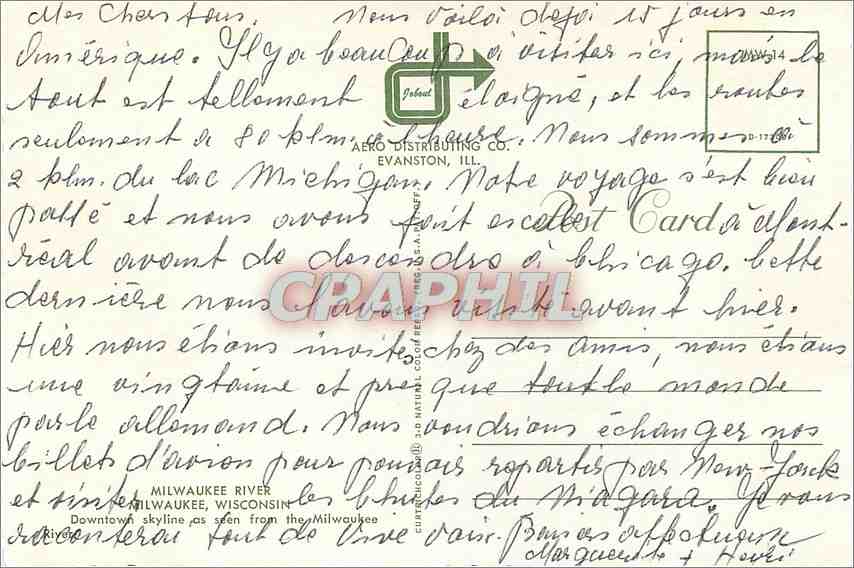 Mes Chers tous. Nous voilà déjà 15 jours en
Amérique. Il y a beaucoup à visiter ici, mais le
JMW-14
tout est tellement éloigné, et les routes
Joboul
seulement à 80 klm. à l'heure. Nous sommes à
AERO DISTRIBUTING CO.
EVANSTON, ILL.
2 klm. du lac Michigan. Notre voyage s'est bien
passé et nous avons fait escale à Mont-
Post Card
réal avant de descendre à Chicago. Cette
dernière nous l'avons visité avant hier.
CPAPHIL
Hier nous étions invités chez des amis, nous étions
une vingtaine et presque tout le monde
parle allemand. Nous voudrions échanger nos
billets d'avion pour pouvoir repartir par New-York
et visiter les Chutes du Niagara. Je vous
raconterai tout de vive voix. Baisers affectueux
Marguerite + Henri
MILWAUKEE RIVER
MILWAUKEE, WISCONSIN
Downtown skyline as seen from the Milwaukee
River.
CURTEICHCOLOR® 3-D NATURAL COLOR REPRODUCTION (REG. U.S.A. PAT. OFF.)